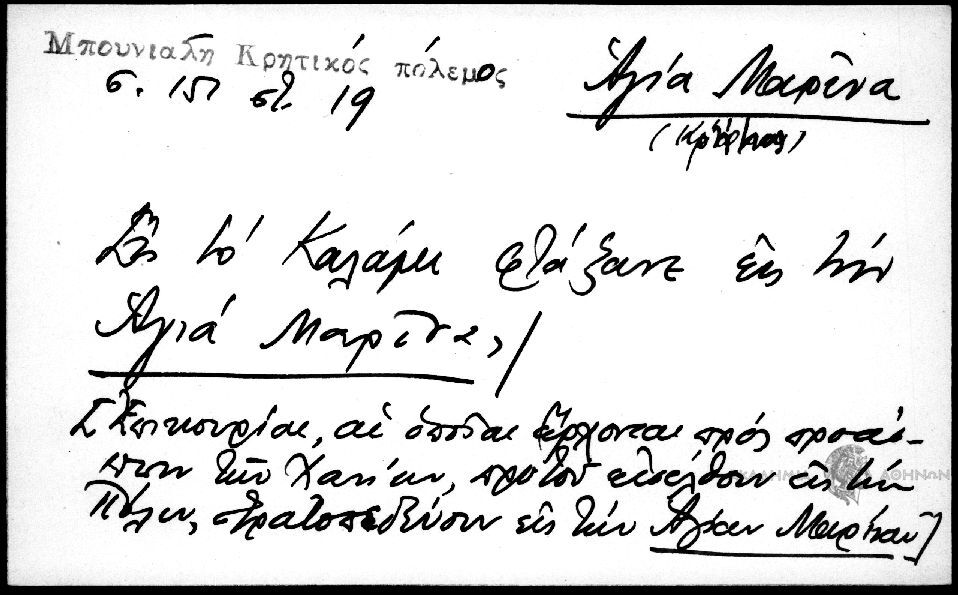 Μπουνιαλη Κρητικός πόλεμος
σ. 151 στ. 19
Ἁγία Μαρῖνα
Εἰς τὸ Καλάμι φτάξανε εἰς τὴν
Ἁγιά Μαρῖνα,/
[Ἐπικουρίαι, αἱ ὁποῖαι ἔρχονται πρὸς προάσ-
πισιν τῶν Χανίων, προτοῦ εἰσέλθουν εἰς τὴν
Πόλιν, στρατοπεδεύουν εἰς τὴν Ἁγίαν Μαρῖναν]
ΑΘΗΝΩΝ